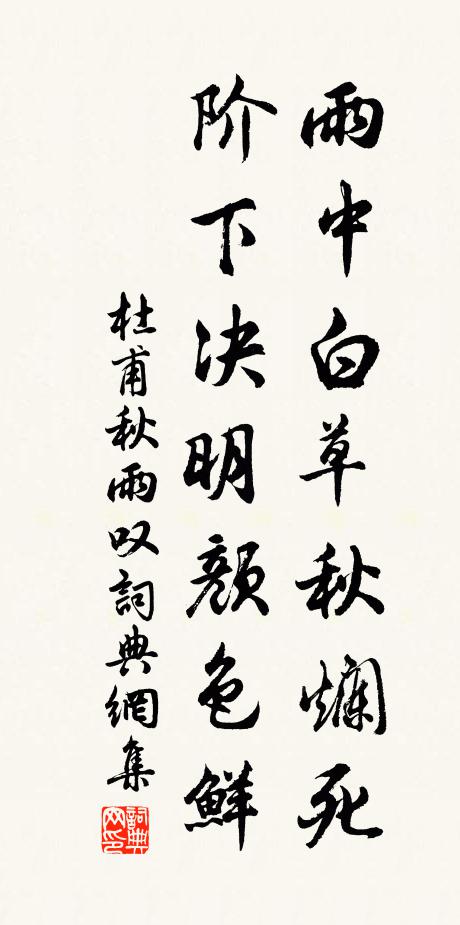 雨中白草秋爛死
阶下决明颜色鮮
杜甫秋雨叹詞典網集
詞典网印